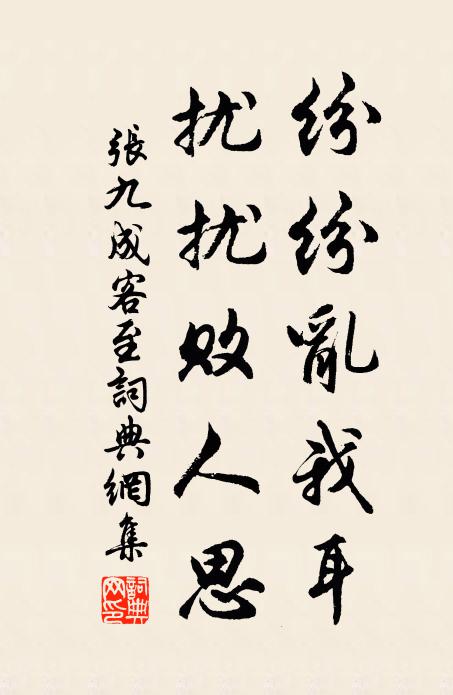 纷纷亂我耳
扰扰败人思
張九成客至詞典網集
詞典网印